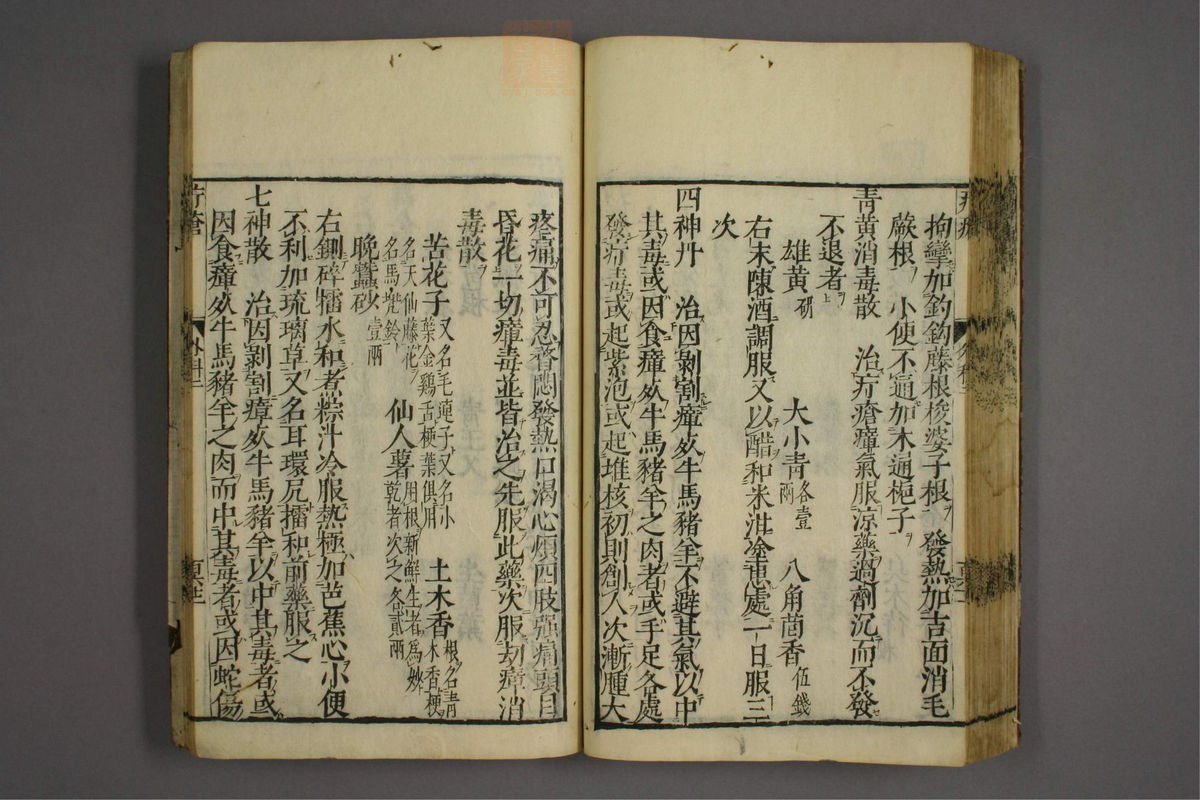 拘攣加釣鈎藤根梭婆子根 發熱加吉面消毛
蕨根 小便不通加木通梔子
青黃消毒散 治疔瘡瘴氣服涼藥過劑沉而不發
不退者
雄黃研 大小青各壹兩 八角茴香伍錢
右末陳酒調服又以醋和米泔塗患處一日服三
次
四神丹 治因剝割瘴死牛馬豬羊不避其氣以中
其毒或因食瘴死牛馬豬羊之肉者或手足各處
發疔毒或起紫泡或起堆核初則創人次漸腫大
疼痛不可忍瞀悶發熱口渴心煩四肢强痛頭目
昏花一切瘴毒並皆治之先服此藥次服刼瘴消
毒散
苦花子又名毛蓮子又名小葉金雞舌梗葉俱用 土木香根名青木香梗
名天仙藤花名馬兜鈴 仙人薯用根新鮮生者為妙乾者次之各貳兩
晚蠶砂壹兩
右剉碎擂水和煮粽汁冷服熱極加芭蕉心小便
不利加琉璃草又名耳環尼擂和前藥服之
七神散 治因剝割瘴死牛馬豬羊以中其毒者或
因食瘴死牛馬豬羊之肉而中其毒者或因蛇傷